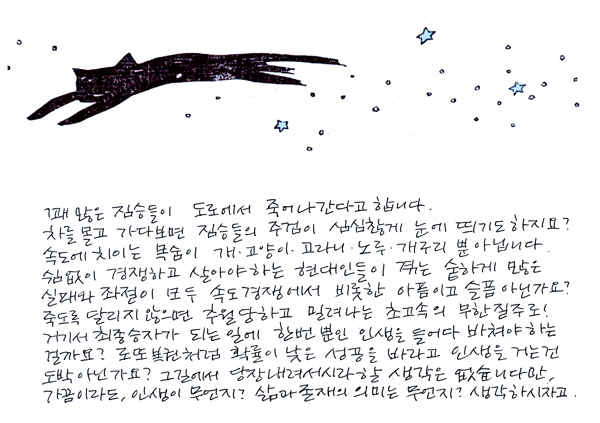 꽤 많은 짐승들이 도로에서 죽어나간다고 합니다.
차를 몰고 가다보면 짐승들의 주검이 심심찮게 눈에 띄기도하지요?
속도에 치이는 목숨이 개·고양이·고라니·노루·개구리 뿐 아닙니다.
쉼없이 경쟁하고 살아야하는 현대인들이 겪는 숱하게 많은
실패와 좌절이 모두 속도경쟁에서 비롯한 아픔이고 슬픔 아닌가요?
죽도록 달리지 않으면 추월당하고 밀려나는 초고속의 무한질주로!
거기서 최종승자가 되는일에 한번 뿐인 인생을 들어다 바쳐야하는
걸까요? 로또복권처럼 확률이 낮은 성공을 바라고 인생을 거는건
도박아닌가요? 그길에서 당장내려서시라할 생각은 없습니다만,
가끔이라도, 인생이 무언지? 삶과존재의 의미는 무언지? 생각하시자고.